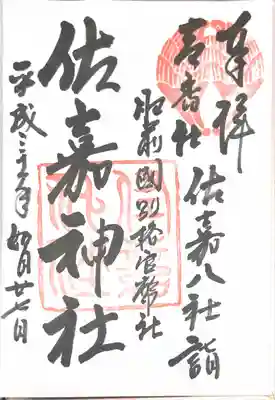 奉拝
壱番社 佐嘉八社詣
肥前國別格官幣社
佐嘉神社
平成二十年 如月廿七日